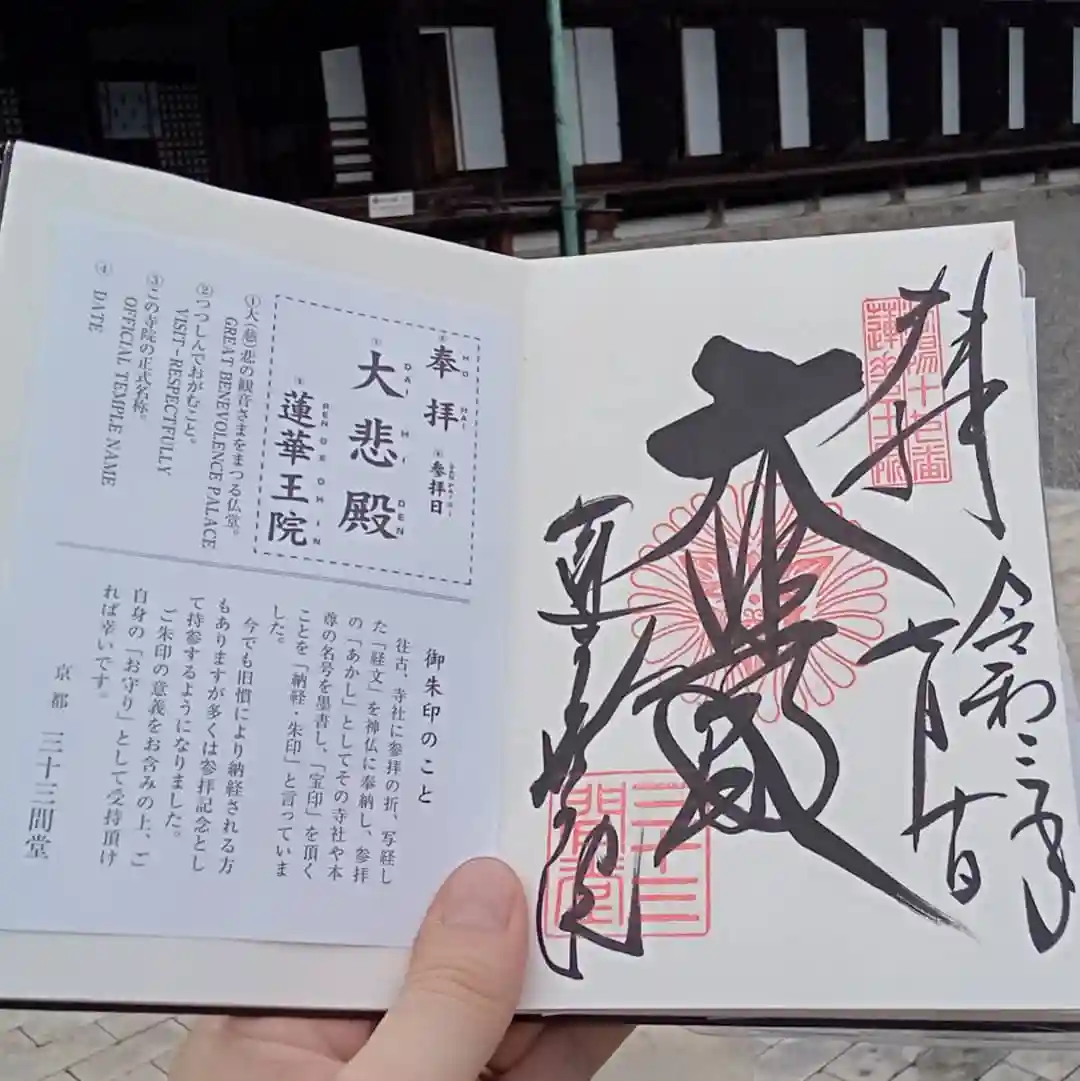 拝
令和三年
七月十日
大悲殿
蓮華王院
洛陽十七番
蓮華王院
三十三
間堂
②奉拝 HO HAI
④参拝日
①大悲殿 DAI HI DEN
③蓮華王院 REN GE OH IN
①大(慈)悲の観音さまをまつる仏堂。
GREAT BENEVOLENCE PALACE
②つつしんでおがむこと。
VISIT–RESPECTFULLY
③この寺院の正式名称。
OFFICIAL TEMPLE NAME
④ DATE
御朱印のこと
往古、寺社に参拝の折、写経し
た「経文」を神仏に奉納し、参拝
の「あかし」としてその寺社や本
尊の名号を墨書し、「宝印」を頂く
ことを「納経・朱印」と言っていま
した。
今でも旧慣により納経される方
もありますが多くは参拝記念とし
て持参するようになりました。
ご朱印の意義をお含みの上、ご
自身の「お守り」として受持頂け
れば幸いです。
京都 三十三間堂